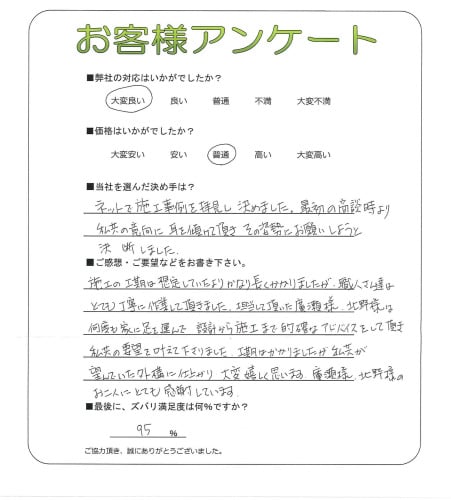 お客様アンケート
■弊社の対応はいかがでしたか？
大変良い 良い 普通 不満 大変不満
■価格はいかがでしたか？
大変安い 安い 普通 高い 大変高い
■当社を選んだ決め手は？
ネットで施工事例を拝見し決めました。最初の商談時より
私共の意向に耳を傾けて頂きその姿勢にお願いしようと
決断しました。
■ご感想・ご要望などをお書き下さい。
施工の工期は想定していたよりかなり長くかかりましたが、職人さん達は
とても丁寧に作業して頂きました。担当して頂いた廣瀬様、北野様は
何度も家に足を運んで設計から施工まで的確なアドバイスをして頂き
私共の要望を叶えて下さりました。工期はかかりましたが私共が
望んでいた外構に仕上がり大変嬉しく思います。廣瀬様、北野様の
お二人にとても感謝しています。
■最後に、ズバリ満足度は何%ですか？
95 %
ご協力頂き、誠にありがとうございました。